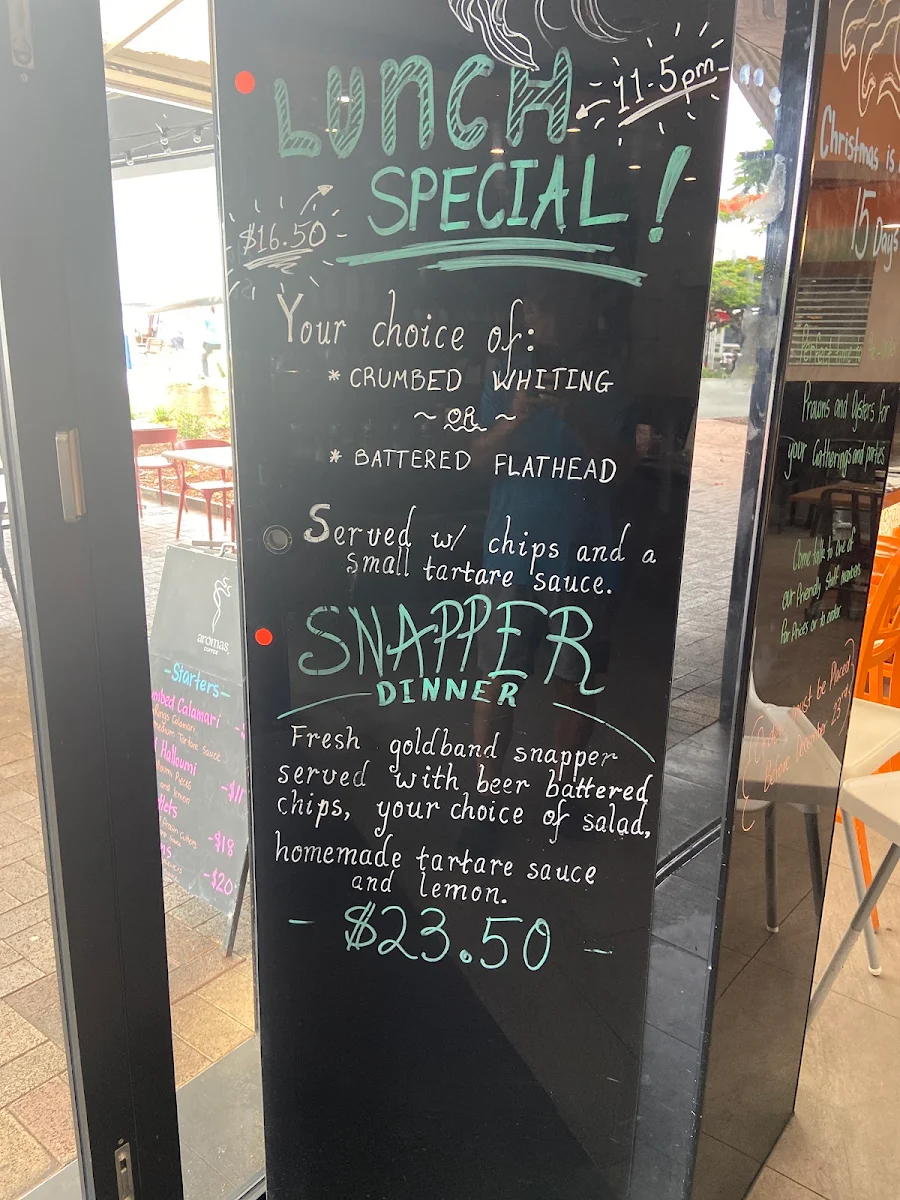 LUNCH
11-5pm
SPECIAL!
$16.50
Your choice of:
* CRUMBED WHITING
~ OR ~
* BATTERED FLATHEAD
Served w/ chips and a
small tartare sauce.
SNAPPER
DINNER
Fresh goldband snapper
served with beer battered
chips, your choice of salad,
homemade tartare sauce
and lemon.
- $23.50 -
aromas
COFFEE
-Starters-
Calamari
Rings Calamari
medium Tartare Sauce
Halloumi
and lemon
-$18
-$20
Christmas is
15 Days
Prawns and Oysters for
your Gatherings and parties
Come talk to one of
our friendly staff members
for prices or to order
must be Placed
Before 23rd